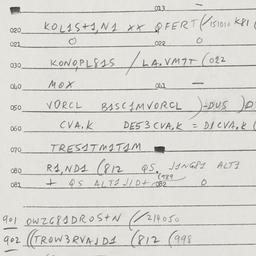 013 —
020 KOL1S+1,N1 xx QFERT (/151010 K81
021 0 022 0
030 KONOPL81S / LA.VM7T (022
040 MOX 041 —
050 VORCL BISCIMVORCL )-DUS )
060 CVA.K DES3CVA,K = D1CVA,K (
070 TRES1TM1T1M
080 R1,ND1 (812 QS J1NG81 ALT1
081 + QS ALT1J1D+ 082 0
901 OWZG81DROS+N (/214050
902 ((TROW3RVA,ID1 (812 (998